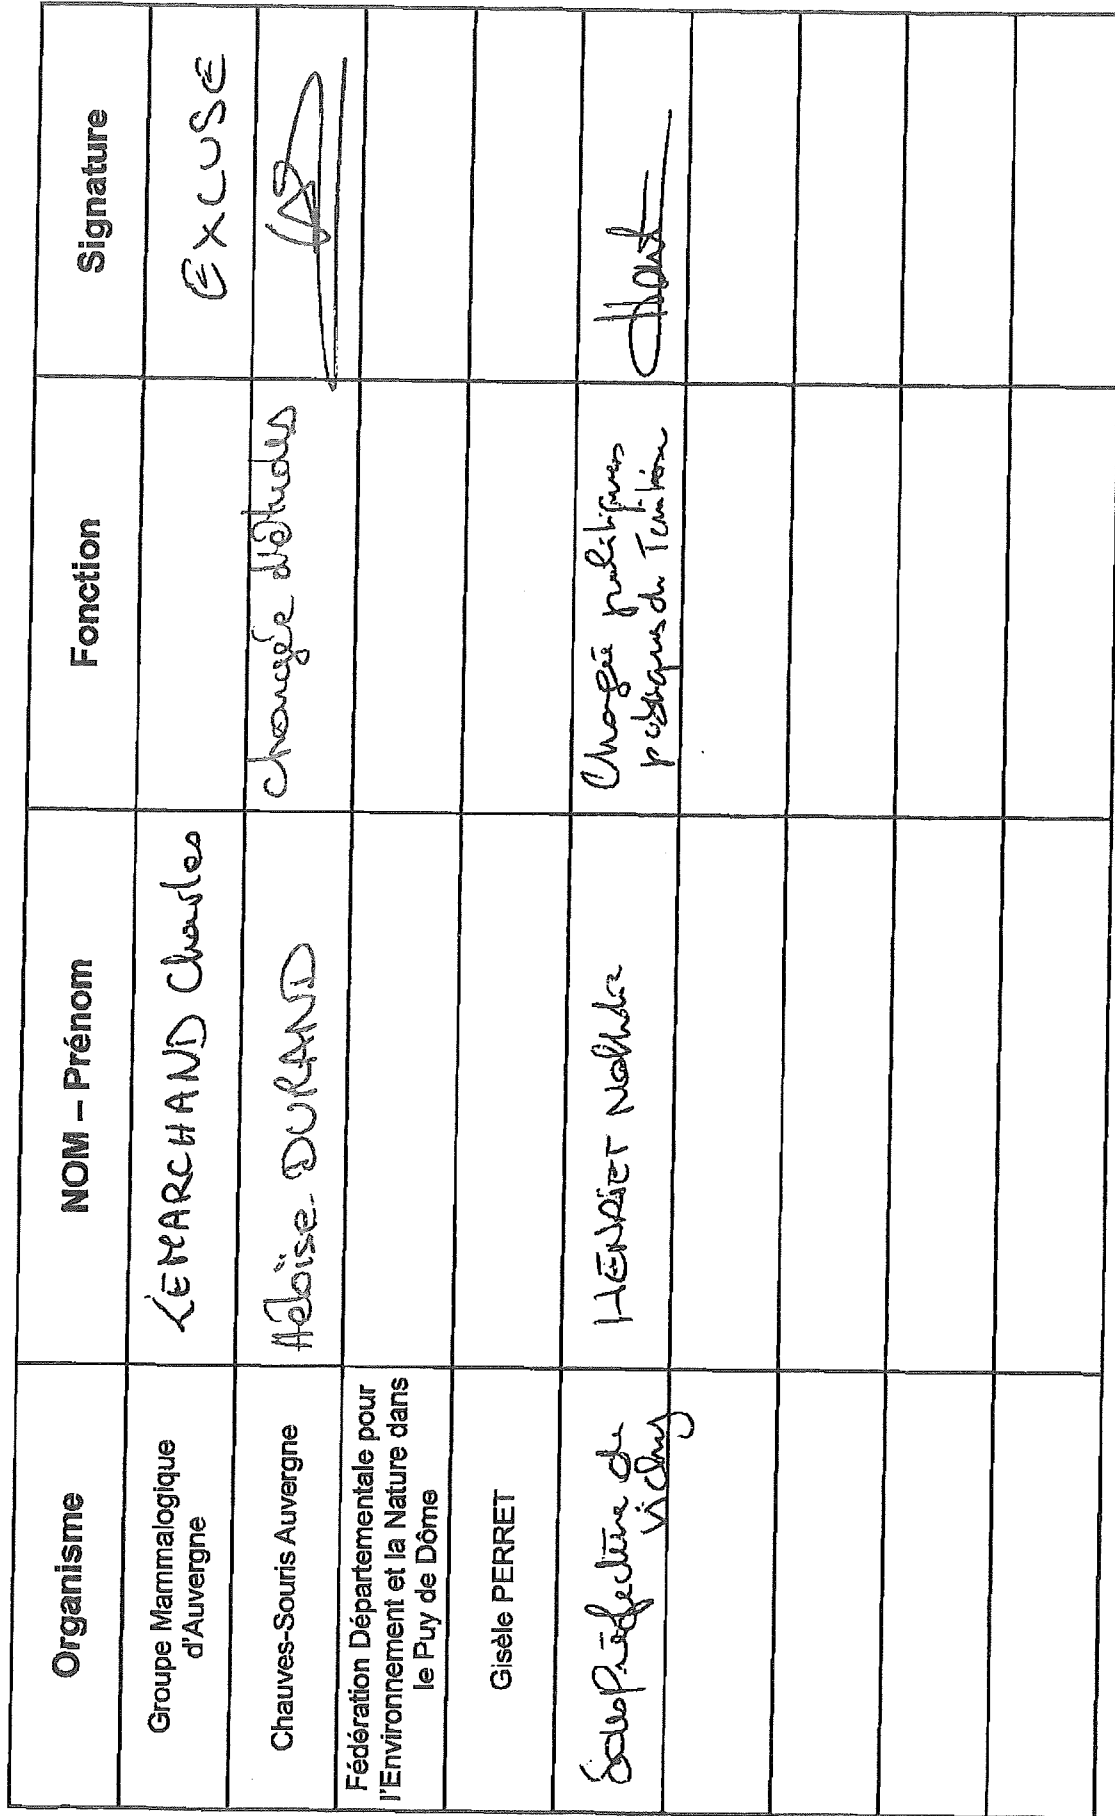 Organisme
NOM – Prénom
Fonction
Signature
Groupe Mammalogique
d'Auvergne
LEMARCHAND Charles
EXCUSE
Chauves-Souris Auvergne
Héloïse DURAND
chargée d'études
Fédération Départementale pour
l'Environnement et la Nature dans
le Puy de Dôme
Gisèle PERRET
Sous Préfecture de
Vichy
HENRIET
Chargée politiques
publiques du Territoire